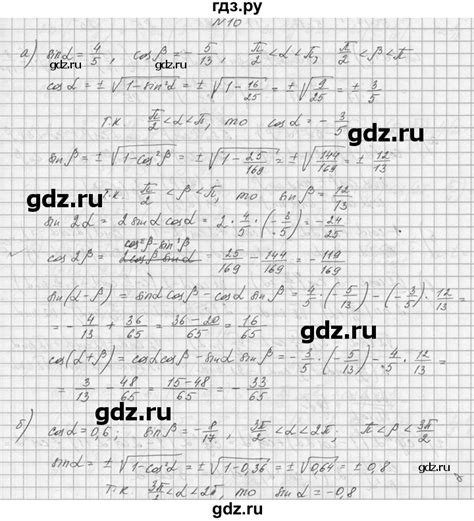 гдз.ру
№10
а) sinα = 4/5, cosβ = -5/13, π/2 < α < π, π/2 < β < π
cosα = ±√(1-sin²α) = ±√(1-16/25) = ±√(9/25) = ±3/5
т.к. π/2 < α < π, то cosα = -3/5
gdz.ru
sinβ = ±√(1-cos²β) = ±√(1-25/169) = ±√(144/169) = ±12/13
gdz.ru
т.к. π/2 < β < π, то sinβ = 12/13
sin2α = 2sinα cosα = 2·4/5·(-3/5) = -24/25
gdz.ru
cos2β = cos²β-sin²β = 25/169 - 144/169 = -119/169
sin(α-β) = sinα cosβ - cosα sinβ = 4/5·(-5/13) - (-3/5)·12/13 =
= -4/13 + 36/65 = 36-20/65 = 16/65
gdz.ru
cos(α+β) = cosα cosβ - sinα sinβ = -3/5·(-5/13) - 4/5·12/13 =
= 3/13 - 48/65 = 15-48/65 = -33/65
gdz.ru
б) cosα = 0,6; sinβ = -8/17, 3π/2 < α < 2π; π < β < 3π/2
sinα = ±√(1-cos²α) = ±√(1-0,36) = ±√0,64 = ±0,8
т.к. 3π/2 < α < 2π, то sinα = -0,8
gdz.ru